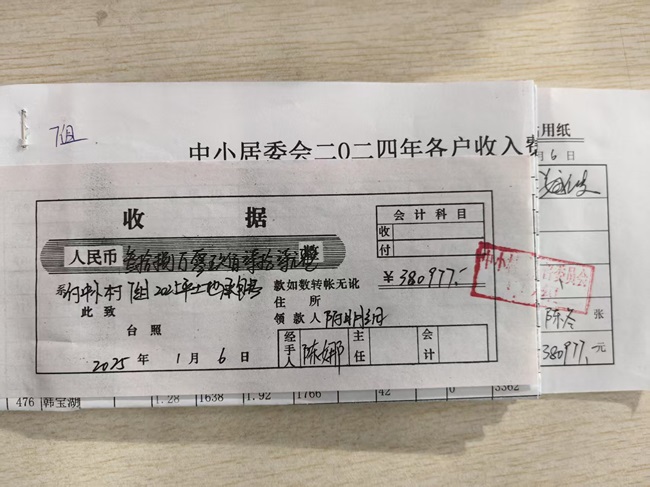 7组
中小居委会二0二四年各户收入费
用纸
月6日
收 据
会计科目
收
付
人民币 叁拾捌万零玖佰柒拾柒元整
￥380977.-
系付中小村7组2025年土地承包费
款如数转帐无讹
此致
住 所
台照
领 款 人
2025 年 1 月 6 日
经手人 陈娜 主任 会计
张
380977. 元
476 韩宝湖 1.28 1638 1.92 1766 42 0 3362